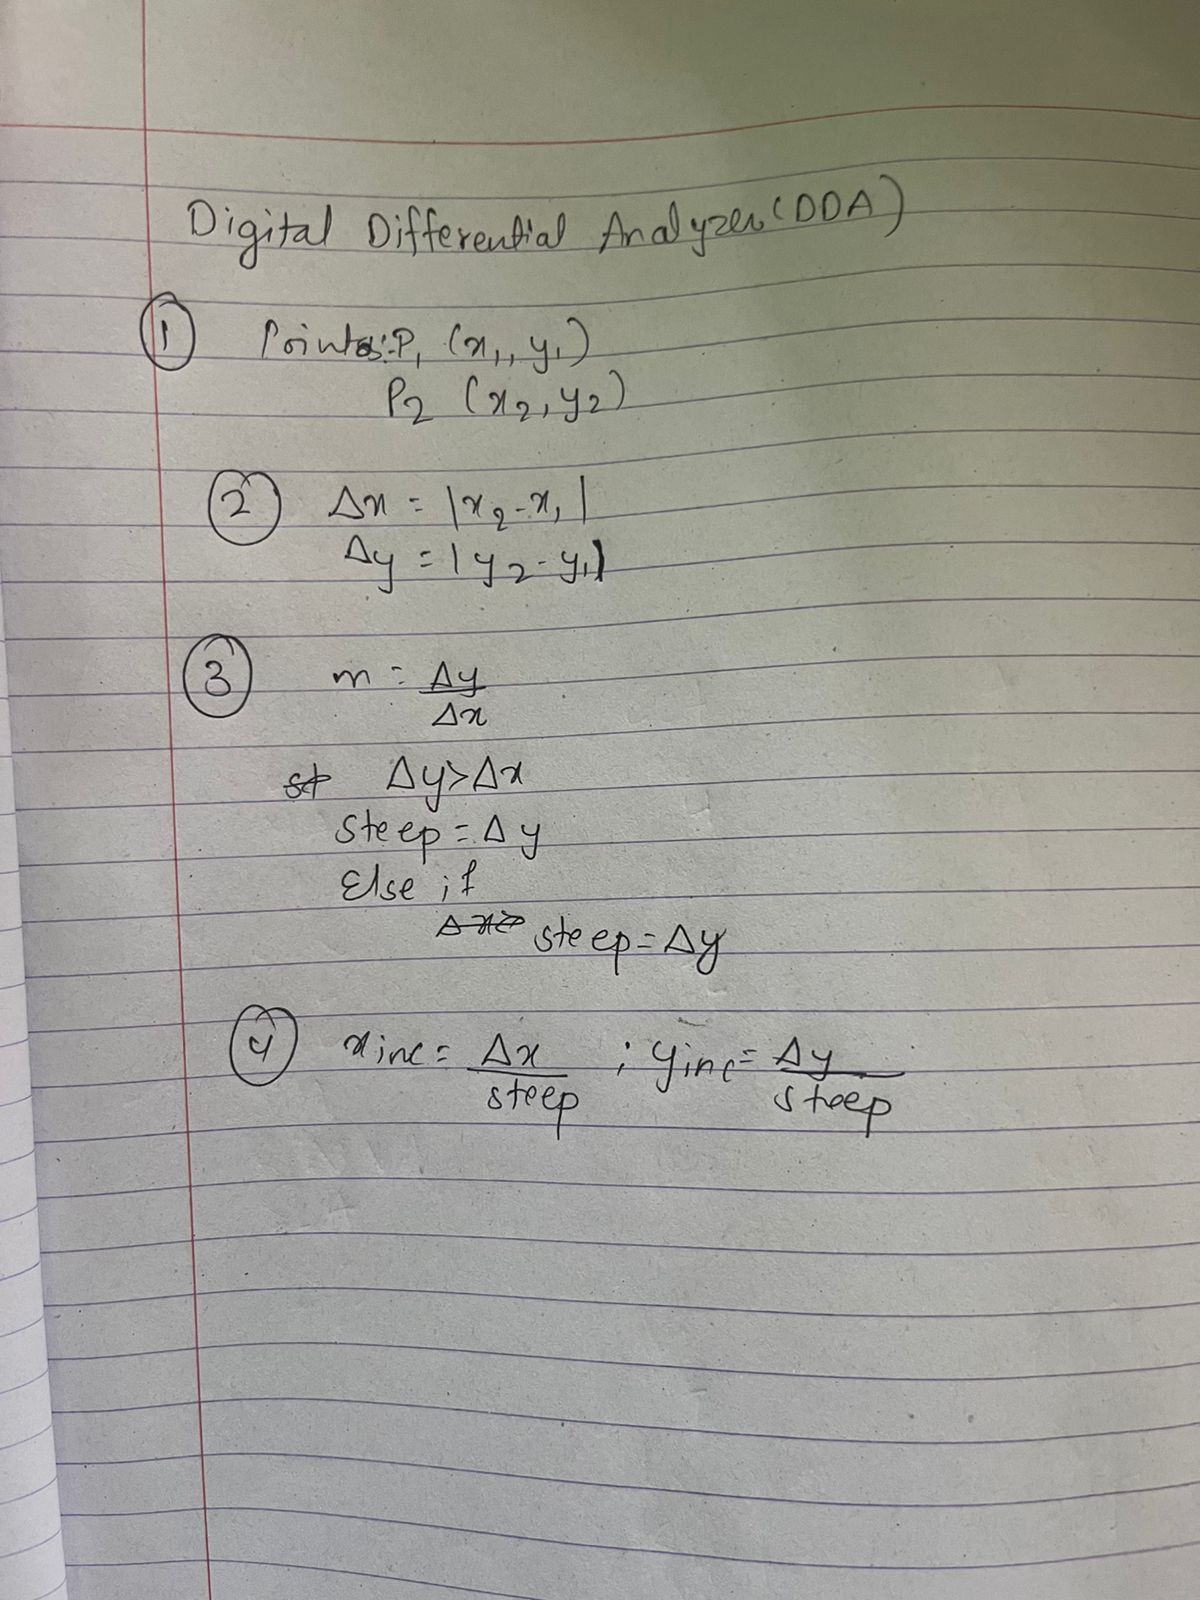 Digital Differential Analyzer (DDA)
① Points: P₁ (x₁, y₁)
P₂ (x₂, y₂)
② Δx = |x₂ - x₁|
Δy = |y₂ - y₁|
③ m = Δy/Δx
Δy > Δx
steep = Δy
Else if
steep = Δy
④ xinc = Δx/steep ; yinc = Δy/steep